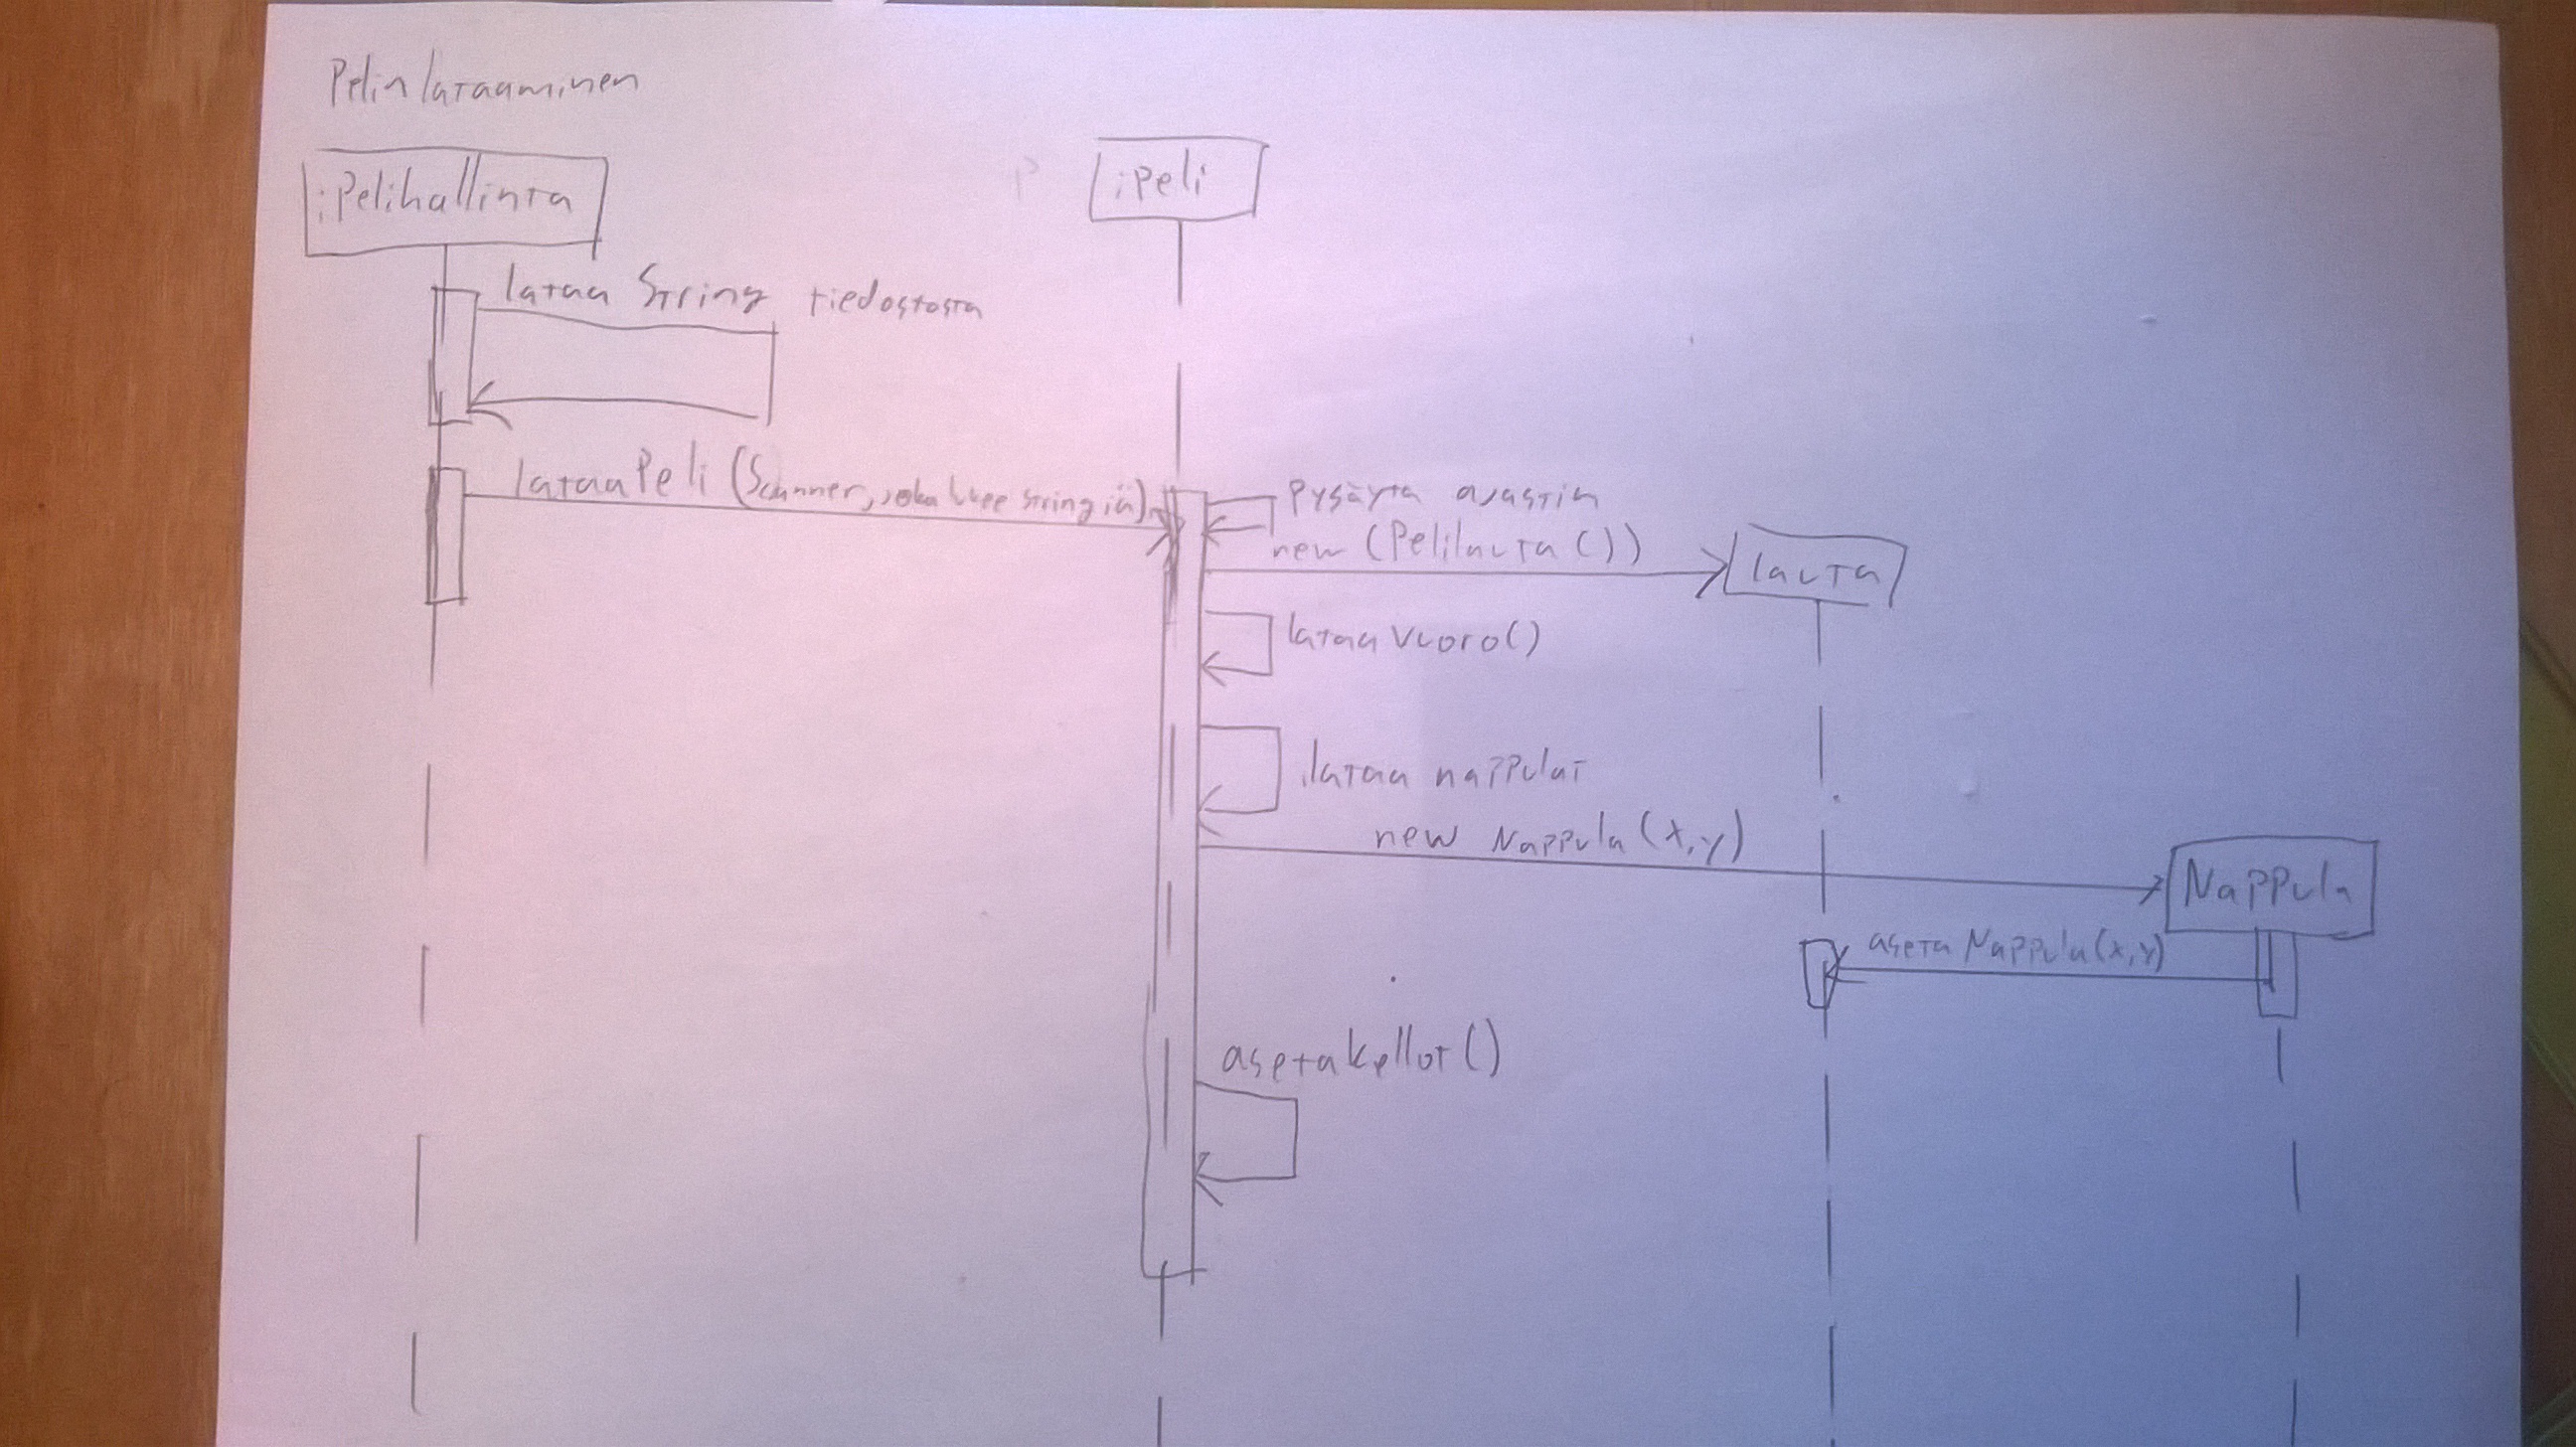 Pelin lataaminen
:Pelihallinta
:Peli
lataa String tiedostosta
lataaPeli (Scanner, joka lukee stringiä)
Pysäytä ajastin
new (Pelilauta ())
lauta
lataa vuoro()
lataa nappulat
new Nappula (x,y)
Nappula
aseta Nappula(x,y)
asetakellot()